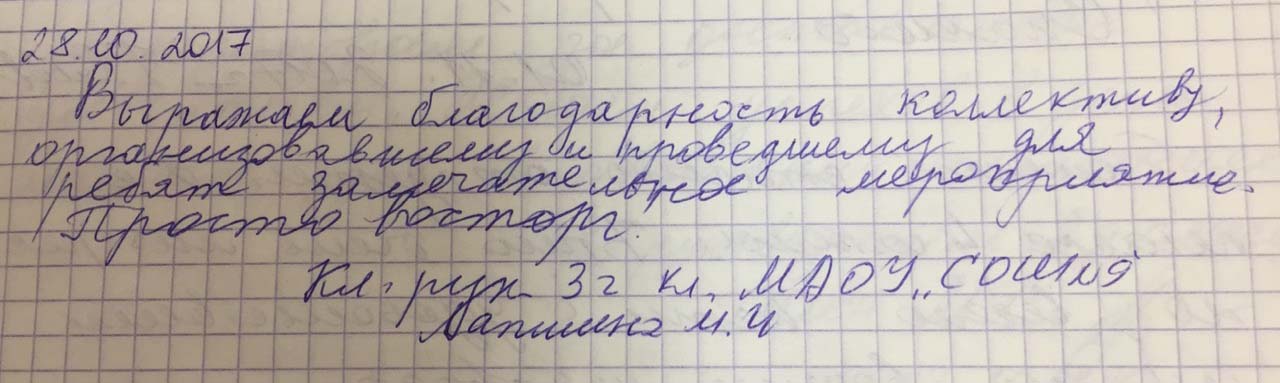 28.10.2017
Выражаем благодарность коллективу,
организовавшему и проведшему для
ребят замечательное мероприятие.
Просто восторг.
Кл. рук. 3г кл. МАОУ „СОШ №9"
Лапшина М.И